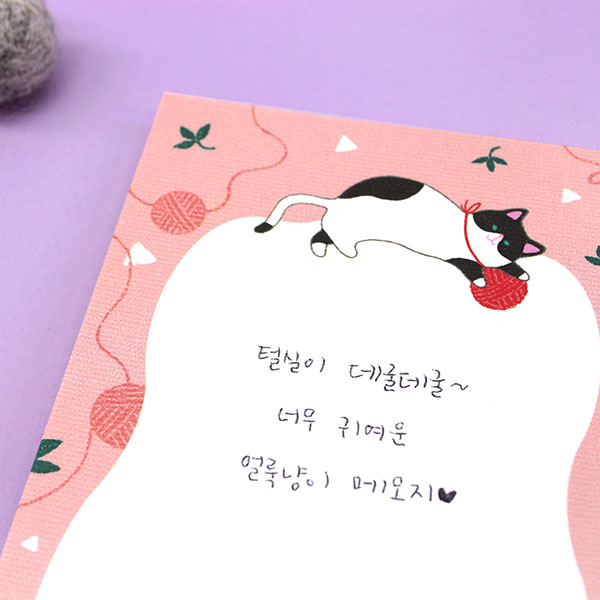 털실이 데굴데굴~
너무 귀여운
얼룩냥이 메모지♥